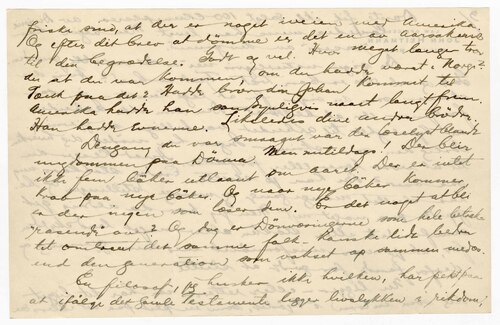 friske sind, at der er noget iveien med Amerika.
Og efter dit brev at dömme er det en av aarsakerne
til din begrædelse. Godt og vel. Hvor meget langer tror
du at du var kommen, om du hadde været i Norge?
Tænk paa det? Hadde bror din Johan kommet til
Amerika hadde han sandsynligvis naaet langt frem.
Han hadde evnerne. Likeledes dine andre brödre.
Dengang du var smaagut var du læselyst blandt
ungdommen paa Dönna. Men nutildags! Der blir
ikke fem böker utlaant om aaret. Der er intet
krav paa nye böker. Og naar nye böker kommer
er der ingen som læser dem. Er det noget at bli
"rasende" over? Og dog er Dönværingerne som hele
tat omtrent det samme folk. Kanske lidt bedre
end den generation som vokset op sammen med os.
En filosof, jeg husker ikke hvilken, har paastaat
at ifölge det Gamle Testamente ligger livslykken i rikdom;